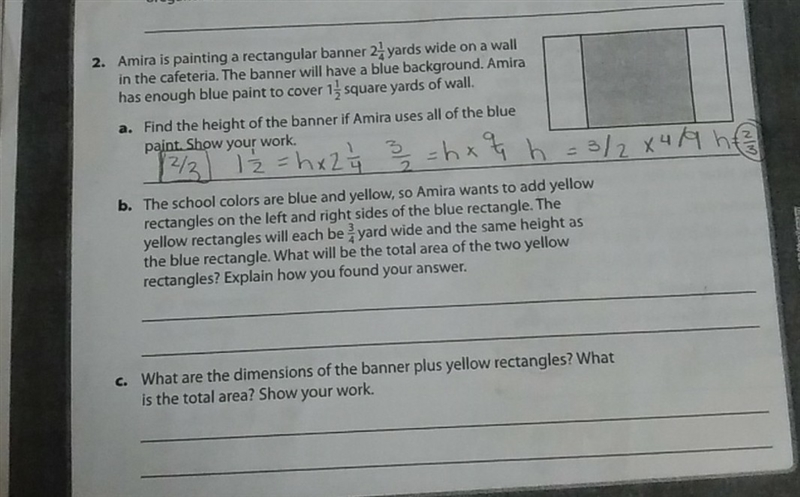 2. Amira is painting a rectangular banner 2 1/4 yards wide on a wall
in the cafeteria. The banner will have a blue background. Amira
has enough blue paint to cover 1 1/2 square yards of wall.
a. Find the height of the banner if Amira uses all of the blue
paint. Show your work.
2/3 1 1/2 = h x 2 1/4 3/2 = h x 9/4 h = 3/2 x 4/9 h = 2/3
b. The school colors are blue and yellow, so Amira wants to add yellow
rectangles on the left and right sides of the blue rectangle. The
yellow rectangles will each be 3/4 yard wide and the same height as
the blue rectangle. What will be the total area of the two yellow
rectangles? Explain how you found your answer.
c. What are the dimensions of the banner plus yellow rectangles? What
is the total area? Show your work.